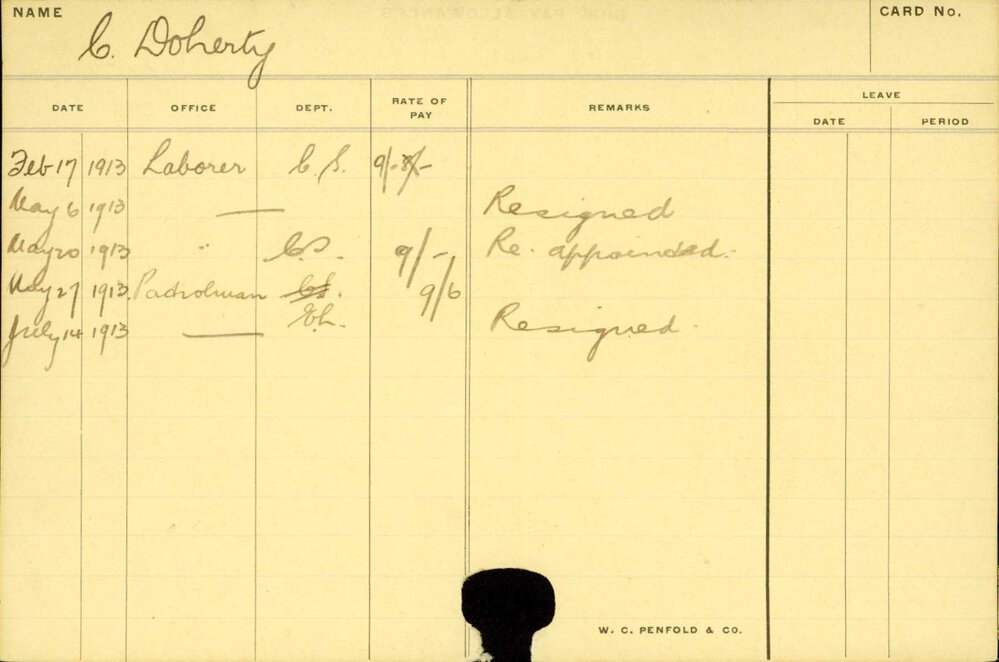 NAME
C. Doherty
CARD No.
DATE OFFICE DEPT. RATE OF PAY REMARKS LEAVE
DATE PERIOD
Feb 17 1913 Laborer C.S. 9/-
May 6 1913 — Resigned
May 20 1913 " C.S. 9/- Re-appointed.
May 27 1913 Patrolman 9/6
July 14 1913 — Resigned.
W. C. PENFOLD & CO.